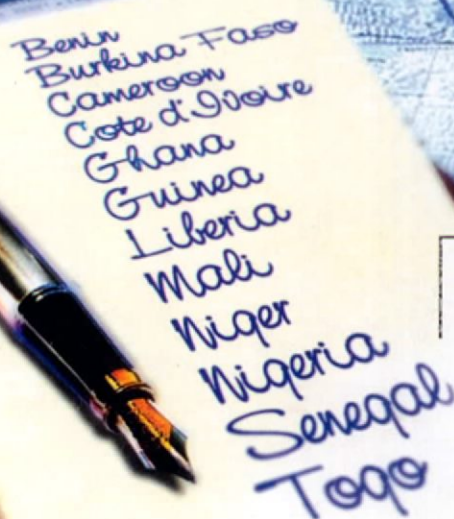 Benin
Burkina Faso
Cameroon
Cote d'Ivoire
Ghana
Guinea
Liberia
Mali
Niger
Nigeria
Senegal
Togo